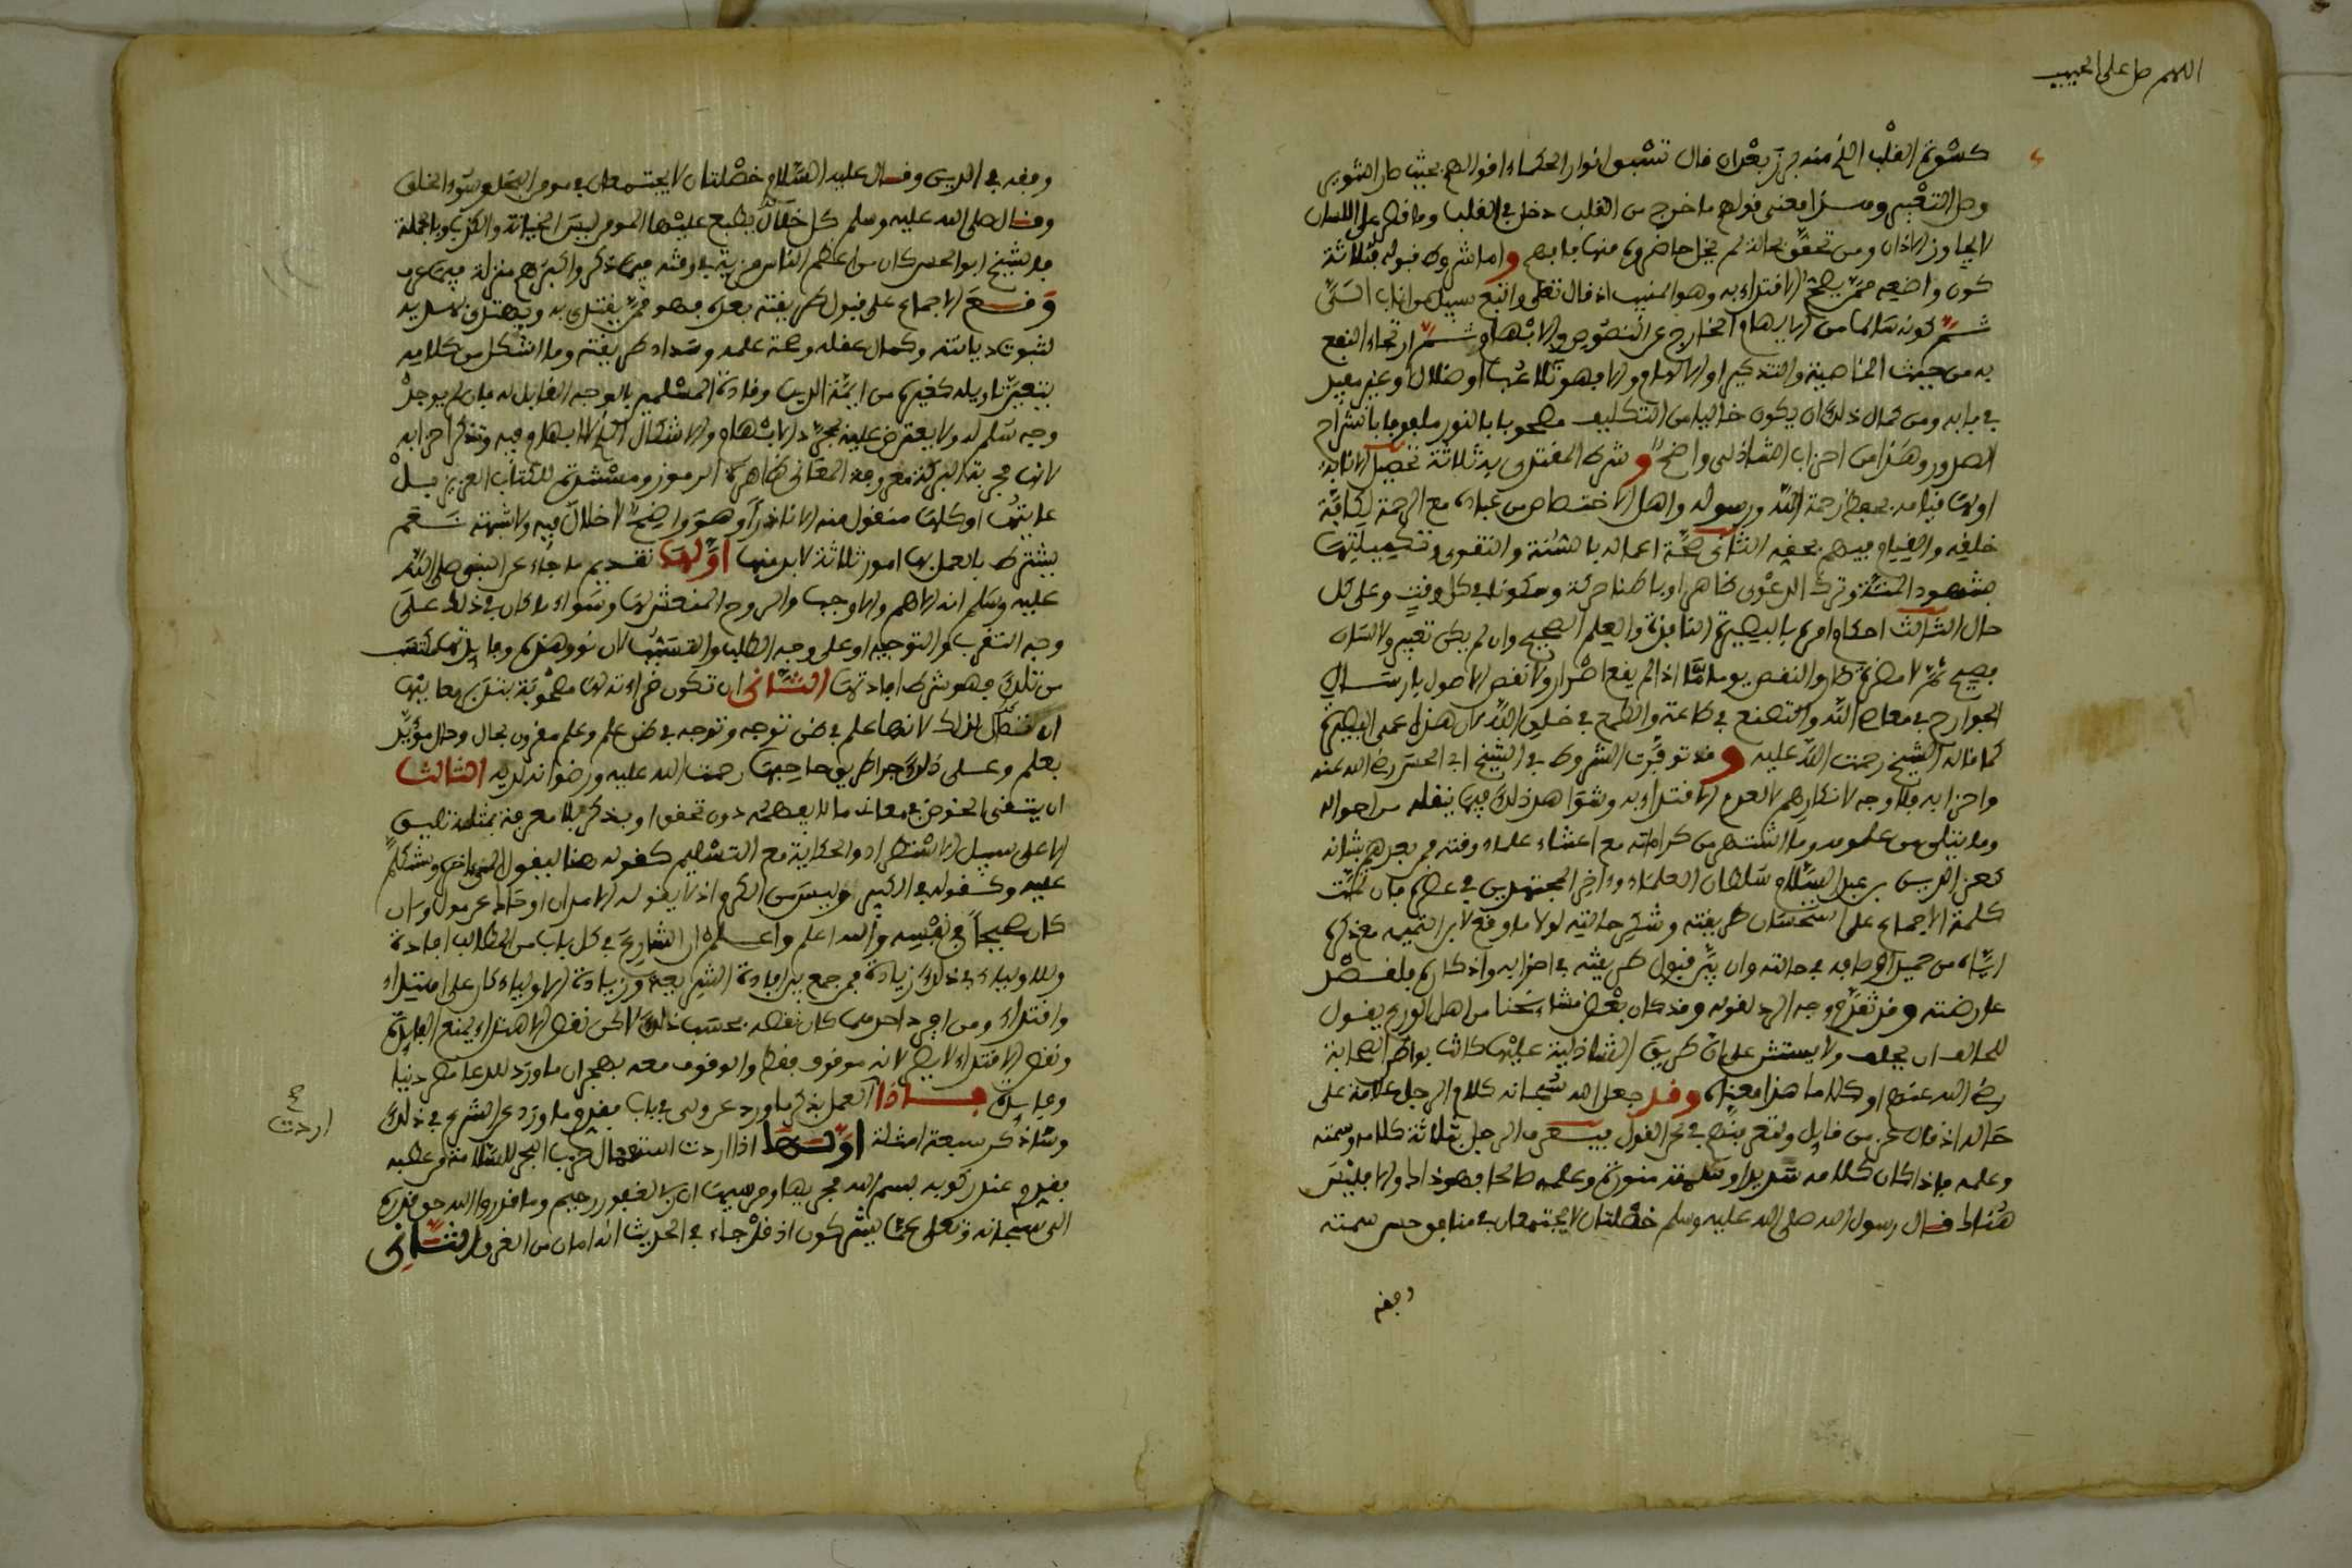 اللهم صل على الحبيب
كسوة القلب الذي منه برز بعد ان قال تسبق انوار الحكماء اقوالهم بحيث صار التنوير
وصل التعبير ومن هذا معنى قولهم ما خرج من القلب دخل في القلب وما قصر على اللسان
لا يجاوز الاذان ومن تحقق بحالة لم يخل حاضروه منها فافهم واما شروط قبوله فثلاثة
كون واضعه ممن يصح الاقتداء به وهو المنيب اذ قال تعلى واتبع سبيل من اناب الي
ثم كونه سالما من الايهام الخارج عن النصوص والابهام ثم ارتجاء النفع
به من حيث الخاصية والتذكير او الالهام والا فهو تلاعب او ضلال او غير مفيد
في بابه ومن كمال ذلك ان يكون خاليا من التكليف مصحوبا بالنور ملفوفا بانشراح
الصدور وهذا من احزاب الشاذلي واضح وشرط المقتدى به ثلاثة تحصيل الانابة
اولها قيامه بحفظ حرمة الله ورسوله واهل الاختصاص من عباده مع الرحمة لكافة
خلقه والقيام فيهم بحقه الثاني صحة اعماله بالسنة والتقوى وتكميلها
بشهود المنة وترك الدعوى ظاهرا وباطنا حركة وسكونا في كل وقت وعلى كل
حال الثالث احكام امره بالبصيرة النافذة والعلم الصحيح وان لم يكن تعبير ولا لسان
فصيح ثم لا مضرة بطرو النقص يوما ما اذا لم يقع اصرار ولا نقص الاصول بارسال
الجوارح في معاصي الله والتصنع في طاعته والطمع في خلق الله لان هذا عمى البصيرة
كما قاله الشيخ رحمت الله عليه وقد توفرت الشروط في الشيخ ابي الحسن رضي الله عنه
واحزابه فلا وجه لانكارهم لعدم الاقتداء به وشواهد ذلك فيما ينقله من احواله
وما يتلى من علومه وما اشتهر من كراماته مع اعتناء علماء وقته فمن بعدهم بشانه
كعز الدين بن عبد السلام سلطان العلماء واخر المجتهدين في عصره فان تمت
كلمة الاجماع على استحسان طريقته وشكر حالته لولا ما وقع لابن التيمية مع ذكره
اياه من جميل اوصافه في حالته وان يبين قبول طريقته في احزابه واذكاره فلقصر
عارضته وقد تقدم وجه الرد لقوله وقد كان بعض مشايخنا من اهل الورع يقول
للحالف ان يحلف ولا يستثني على ان طريق الشاذلية عليها كانت بواطن الصحابة
رضي الله عنهم او كلاما هذا معناه وقد جعل الله سبحانه كلام الرجل علامة على
حاله اذ قال عز من قايل ولتعرفنهم في لحن القول فيعرف الرجل بثلاثة كلامه وسمته
وعلمه فاذا كان كلامه سديدا وسمته منورة وعلمه صالحا فهو ذاك والا فليس
هناك قال رسول الله صلى الله عليه وسلم خصلتان لا يجتمعان في منافق حسن سمته
وفقه
وفقه في الدين وقال عليه السلام خصلتان لا يجتمعان في مومن البخل وسوء الخلق
وقال صلى الله عليه وسلم كل خصال يطبع عليها المومن ليس الخيانة والكذب وبالجملة
فالشيخ ابو الحسن كان من اعظم الناس مزية في وقته فيما ذكر واكبرهم منزلة فيما عرف
وقع الاجماع على قبول طريقته بعده فهو ممن يقتدى به ويهتدى لاسلوبه
لثبوت ديانته وكمال عقله وصحة علمه وسداد طريقته وما اشكل من كلامه
يتعين تاويله كغيره من ايمة الدين وقادة المسلمين بالوجه القابل له فان لم يوجد
وجه سلم له ولا يعترض عليه بمجرد الابهام والاشكال لا الابهام فيه وتذكر احزابه
لانها مجربة البركة معروفة المعاني ظاهرة الرموز ومسندة للكتاب العزيز بل
غايتها او كلها منقول منه الا نادرا وهو واضح لا خلال فيه ولا شبهة نعم
يشترط بالعمل بها امور ثلاثة لا بد منها اولها تقديم ما جاء عن النبي صلى الله
عليه وسلم لانه الاهم والاوجب والروح المنعش لها وسواء كان في ذلك على
وجه التقرب والتوجه او على وجه الطلب والتسبب لان نور هذه وفايدتها مكتسب
من تلك فهو شرط افادتها الثاني ان تكون قراءته لها مصحوبة بتدبر معانيها
ان تشاكل لذلك لانها علم في ضمن توجه وتوجه في ضمن علم وعلم مقرون بحال وحال مؤيد
بعلم وعلى ذلك جرا طريق صاحبها رحمت الله عليه ورضوانه لديه الثالث
ان يتقي الخوض في معاني ما لا يفهمه دون تحقق او يذكر بلا معرفة بمثله تليق
الا على سبيل الاستطراد والحكاية مع التسليم كقوله هنا ليقول الى اخره وشكله
عليه وكقوله في الكبير وليس من الكرم اذ لا يقوله الا من اذن او حاك عن من اذن
كان صحيحا في نفسه والله اعلم واعلم ان الشارع في كل باب من المطالب افادة
وللاولياء في ذلك زيادة فمن جمع بين افادة الشريعة وزيادة الاولياء كان على اهتداء
واقتداء ومن افرد احدهما كان نقصه بحسب ذلك لاكن نقص الاهتداء يمنع الفايدة
ونقص الاقتداء لا يضر لانه موقوف فقط والوقوف معه بهجران ما ورد للدعا مضر دنيا
وفايدة فاذا العمل بذكر ما ورد عن ولي في باب فقدم ما ورد عن الشرع في ذلك
وساذكر سبعة امثلة اولها اذا اردت استعمال حزب البحر للسلامة من عطبه
فقدم عند ركوبه بسم الله مجريها ومرسيها ان ربي لغفور رحيم وما قدروا الله حق قدره
الى سبحانه وتعلى عما يشركون اذ قد جاء في الحديث انه امان من الغرق الثاني
اردت